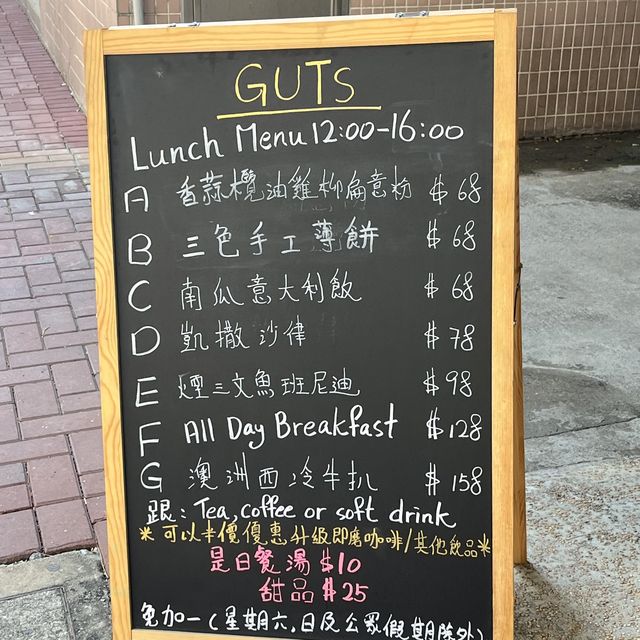 GUTS
Lunch Menu 12:00-16:00
A 香蒜欖油雞柳扁意粉 $68
B 三色手工薄餅 $68
C 南瓜意大利飯 $68
D 凱撒沙律 $78
E 煙三文魚班尼迪 $98
F All Day Breakfast $128
G 澳洲西冷牛扒 $158
跟: Tea, coffee or soft drink
*可以半價優惠升級即磨咖啡/其他飲品*
是日餐湯 $10
甜品 $25
免加一(星期六,日及公眾假期除外)